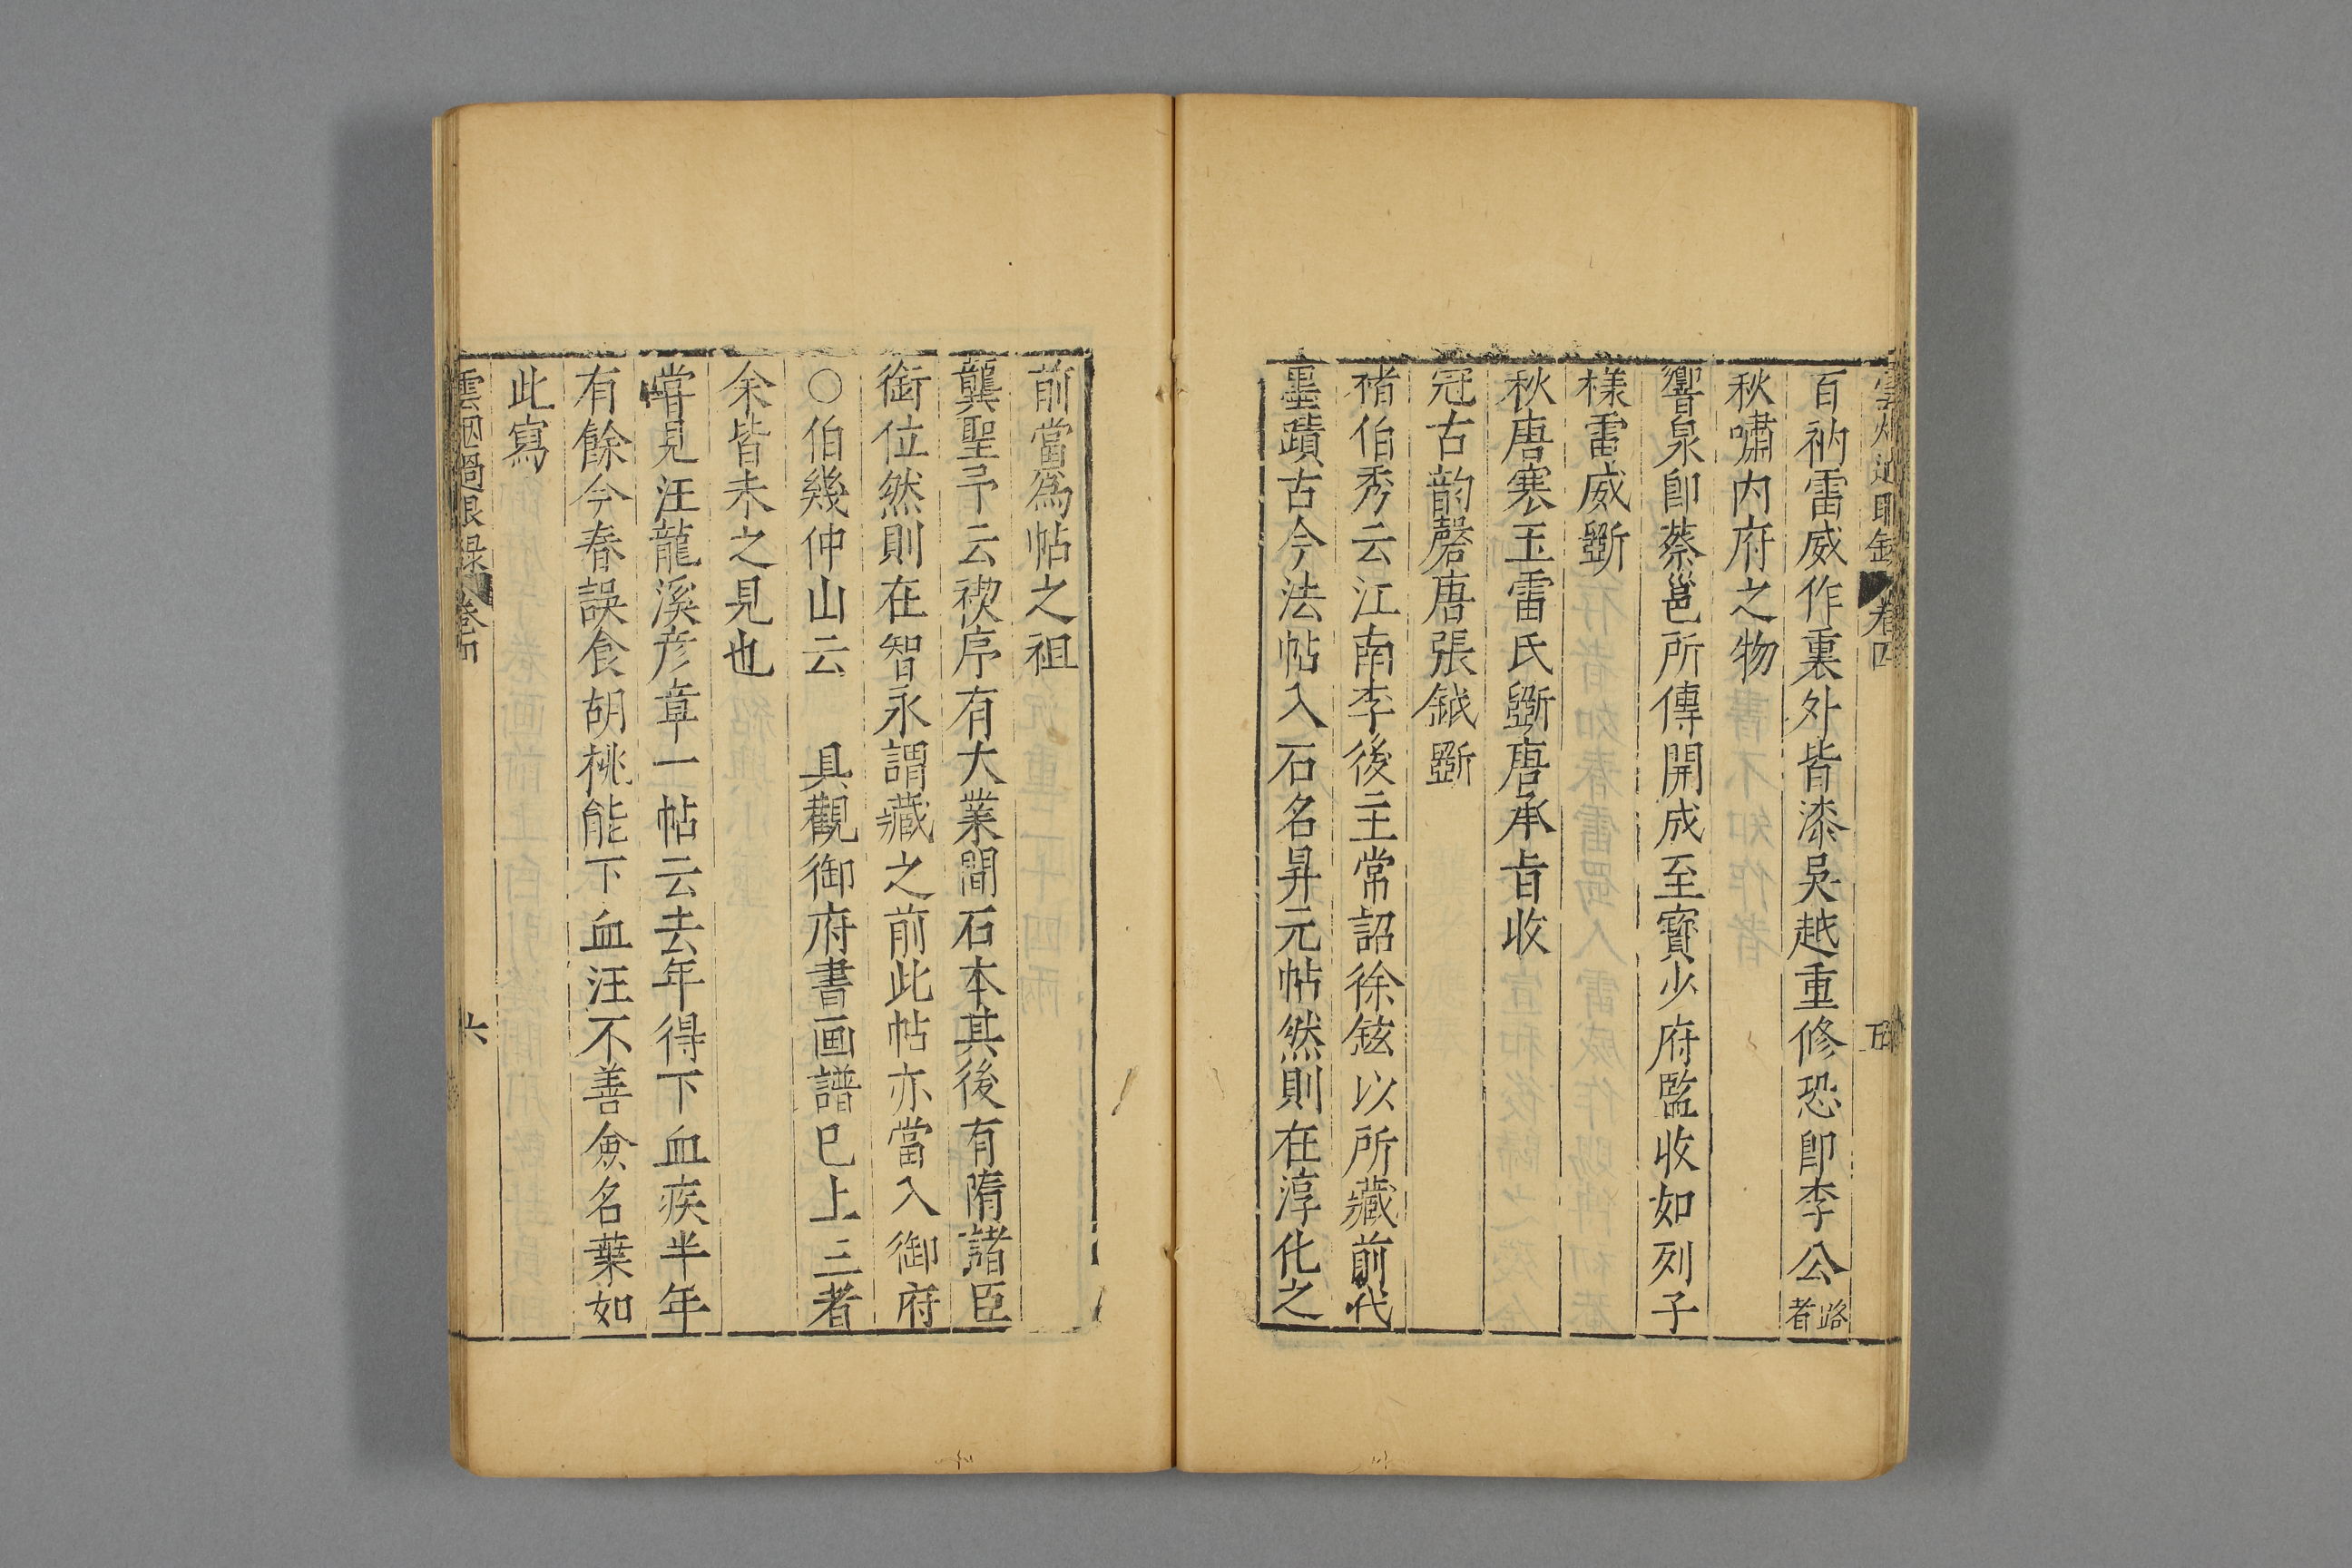 雲烟過眼錄 卷四 五
百衲雷威作裏外皆漆吳越重修恐卽李公路者
秋嘯內府之物
響泉卽蔡邕所傳開成至寳少府監收如列子
樣雷威斵
秋唐寒玉雷氏斵唐承旨收
冠古韵磬唐張鉞斵
褚伯秀云江南李後主常詔徐鉉以所藏前代
墨蹟古今法帖入石名昇元帖然則在淳化之
前當爲帖之祖
龔聖予云禊序有大業間石本其後有隋諸臣
銜位然則在智永謂藏之前此帖亦當入御府
○伯幾仲山云 具觀御府書画譜巳上三者
余皆未之見也
嘗見汪龍溪彦章一帖云去年得下血疾半年
有餘今春誤食胡桃能下血汪不善僉名葉如
此寫
雲烟過眼錄 卷四 六